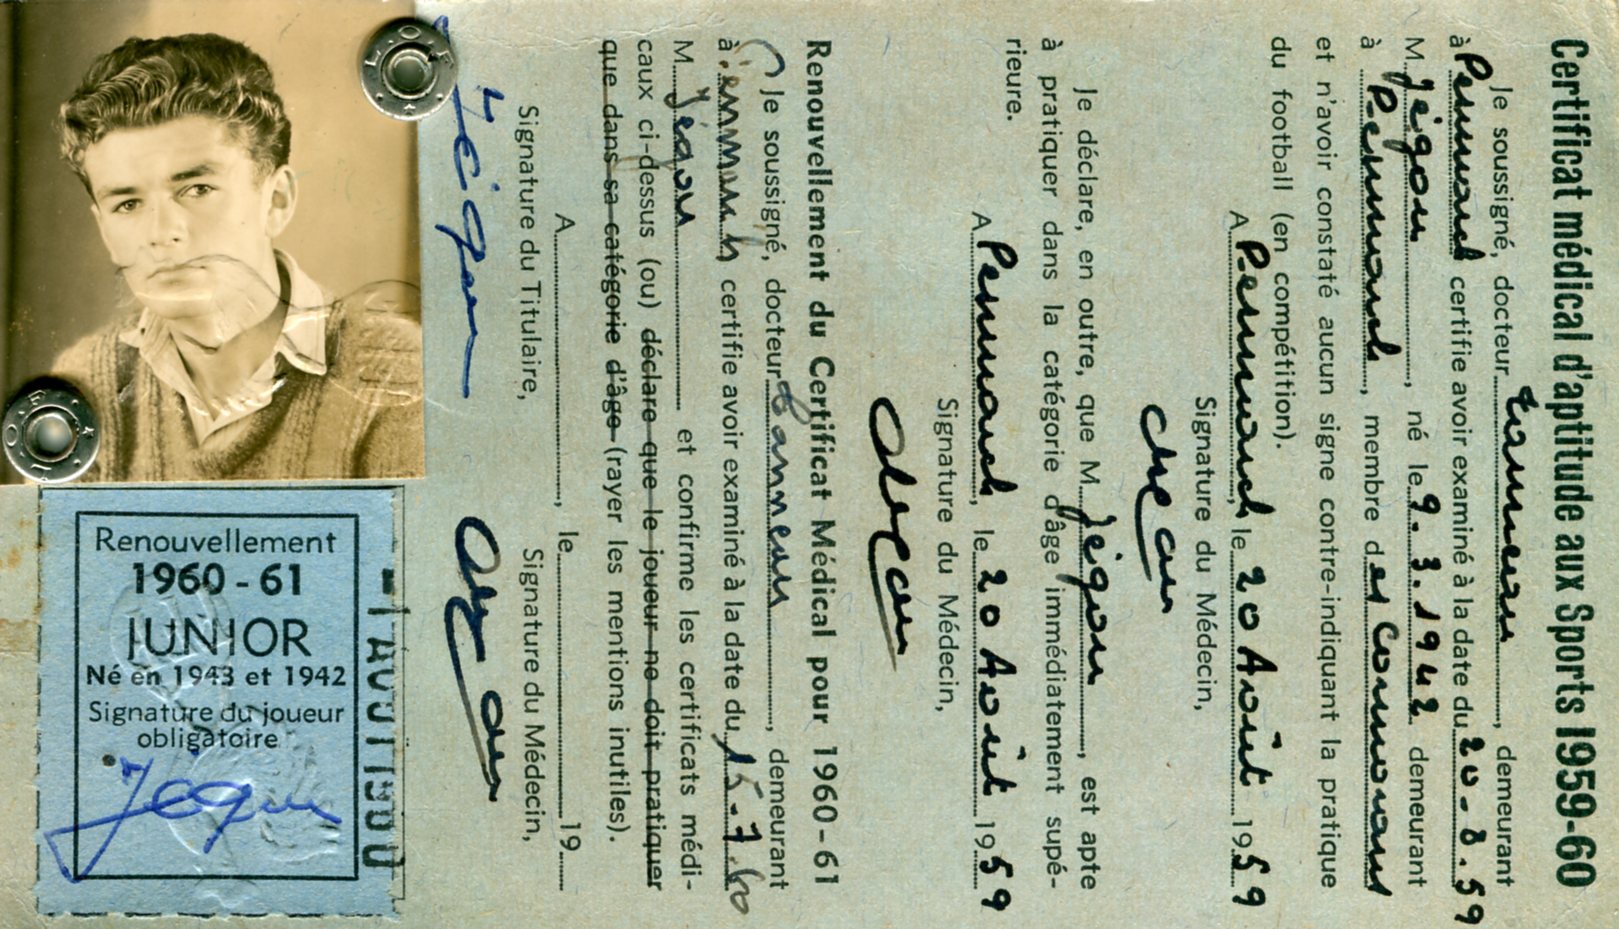 Certificat médical d'aptitude aux Sports 1959-60
Je soussigné, docteur Tanneau, demeurant
à Penmarch certifie avoir examiné à la date du 20-8.59
M. Jégou, né le 9.3.1942 demeurant
à Penmarch, membre des Cormorans
et n'avoir constaté aucun signe contre-indiquant la pratique
du football (en compétition).
A Penmarch, le 20 Août 1959
Signature du Médecin,
Je déclare, en outre, que M. Jégou, est apte
à pratiquer dans la catégorie d'âge immédiatement supé-
rieure.
A Penmarch, le 20 Août 1959
Signature du Médecin,
Renouvellement du Certificat Médical pour 1960-61
Je soussigné, docteur Tanneau, demeurant
à Penmarch certifie avoir examiné à la date du 15-7.60
M. Jégou et confirme les certificats médi-
caux ci-dessus (ou) déclare que le joueur ne doit pratiquer
que dans sa catégorie d'âge (rayer les mentions inutiles).
A, le 19
Signature du Titulaire, Signature du Médecin,
Jégou
Renouvellement
1960-61
JUNIOR
Né en 1943 et 1942
Signature du joueur
obligatoire
Jégou
-1 AOUT 1960